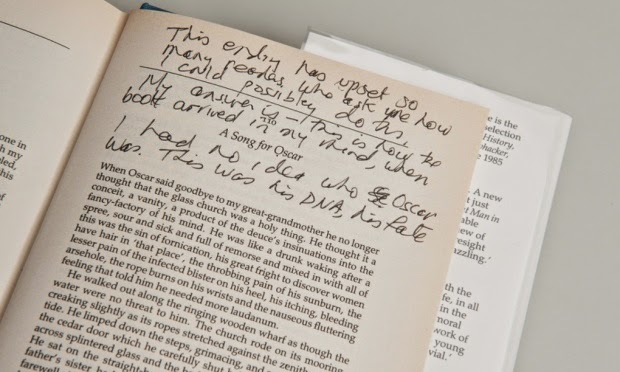 one in
h my
led,
This ending has upset so
many readers, who ask me how
I could possibly do this.
My answer is – this is how the
book arrived in my mind, when
110
A Song for Oscar
I had no idea who Oscar
was. This was his DNA, his fate
When Oscar said goodbye to my great-grandmother he no longer
thought that the glass church was a holy thing. He thought it a
conceit, a vanity, a product of the deuce's insinuations into the
fancy-factory of his mind. He was like a drunk waking after a
spree, sour and sick and full of remorse and mixed in with all of
this was the sin of fornication, his great fright to discover women
have hair in 'that place', the throbbing pain of his sunburn, the
lesser pain of the infected blister on his heel, his itching, bleeding
arsehole, the rope burns on his wrists and the nauseous fluttering
feeling that told him he needed more laudanum.
He walked out along the ringing wooden wharf as though the
water were no threat to him. The church rode on its mooring
creaking slightly as its ropes stretched against the zenith
tide. He limped down the steps, grimacing, and
the cedar door which he carefully shut
across splintered glass and the
He sat on the straight-b
father's sister
farewell
e is the
selection
History,
hacker,
1985
A new
just
Man in
ew of
resight
zzling.'
th the
ife, in all
in the
moral
work of
young
vial.'